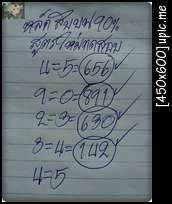 หลัดสิบบน 90%
สูตรใหม่ทดสอบ
4=5=656
9=0=891
2=3=630
3=4=142
4=5
[450x600] upic.me